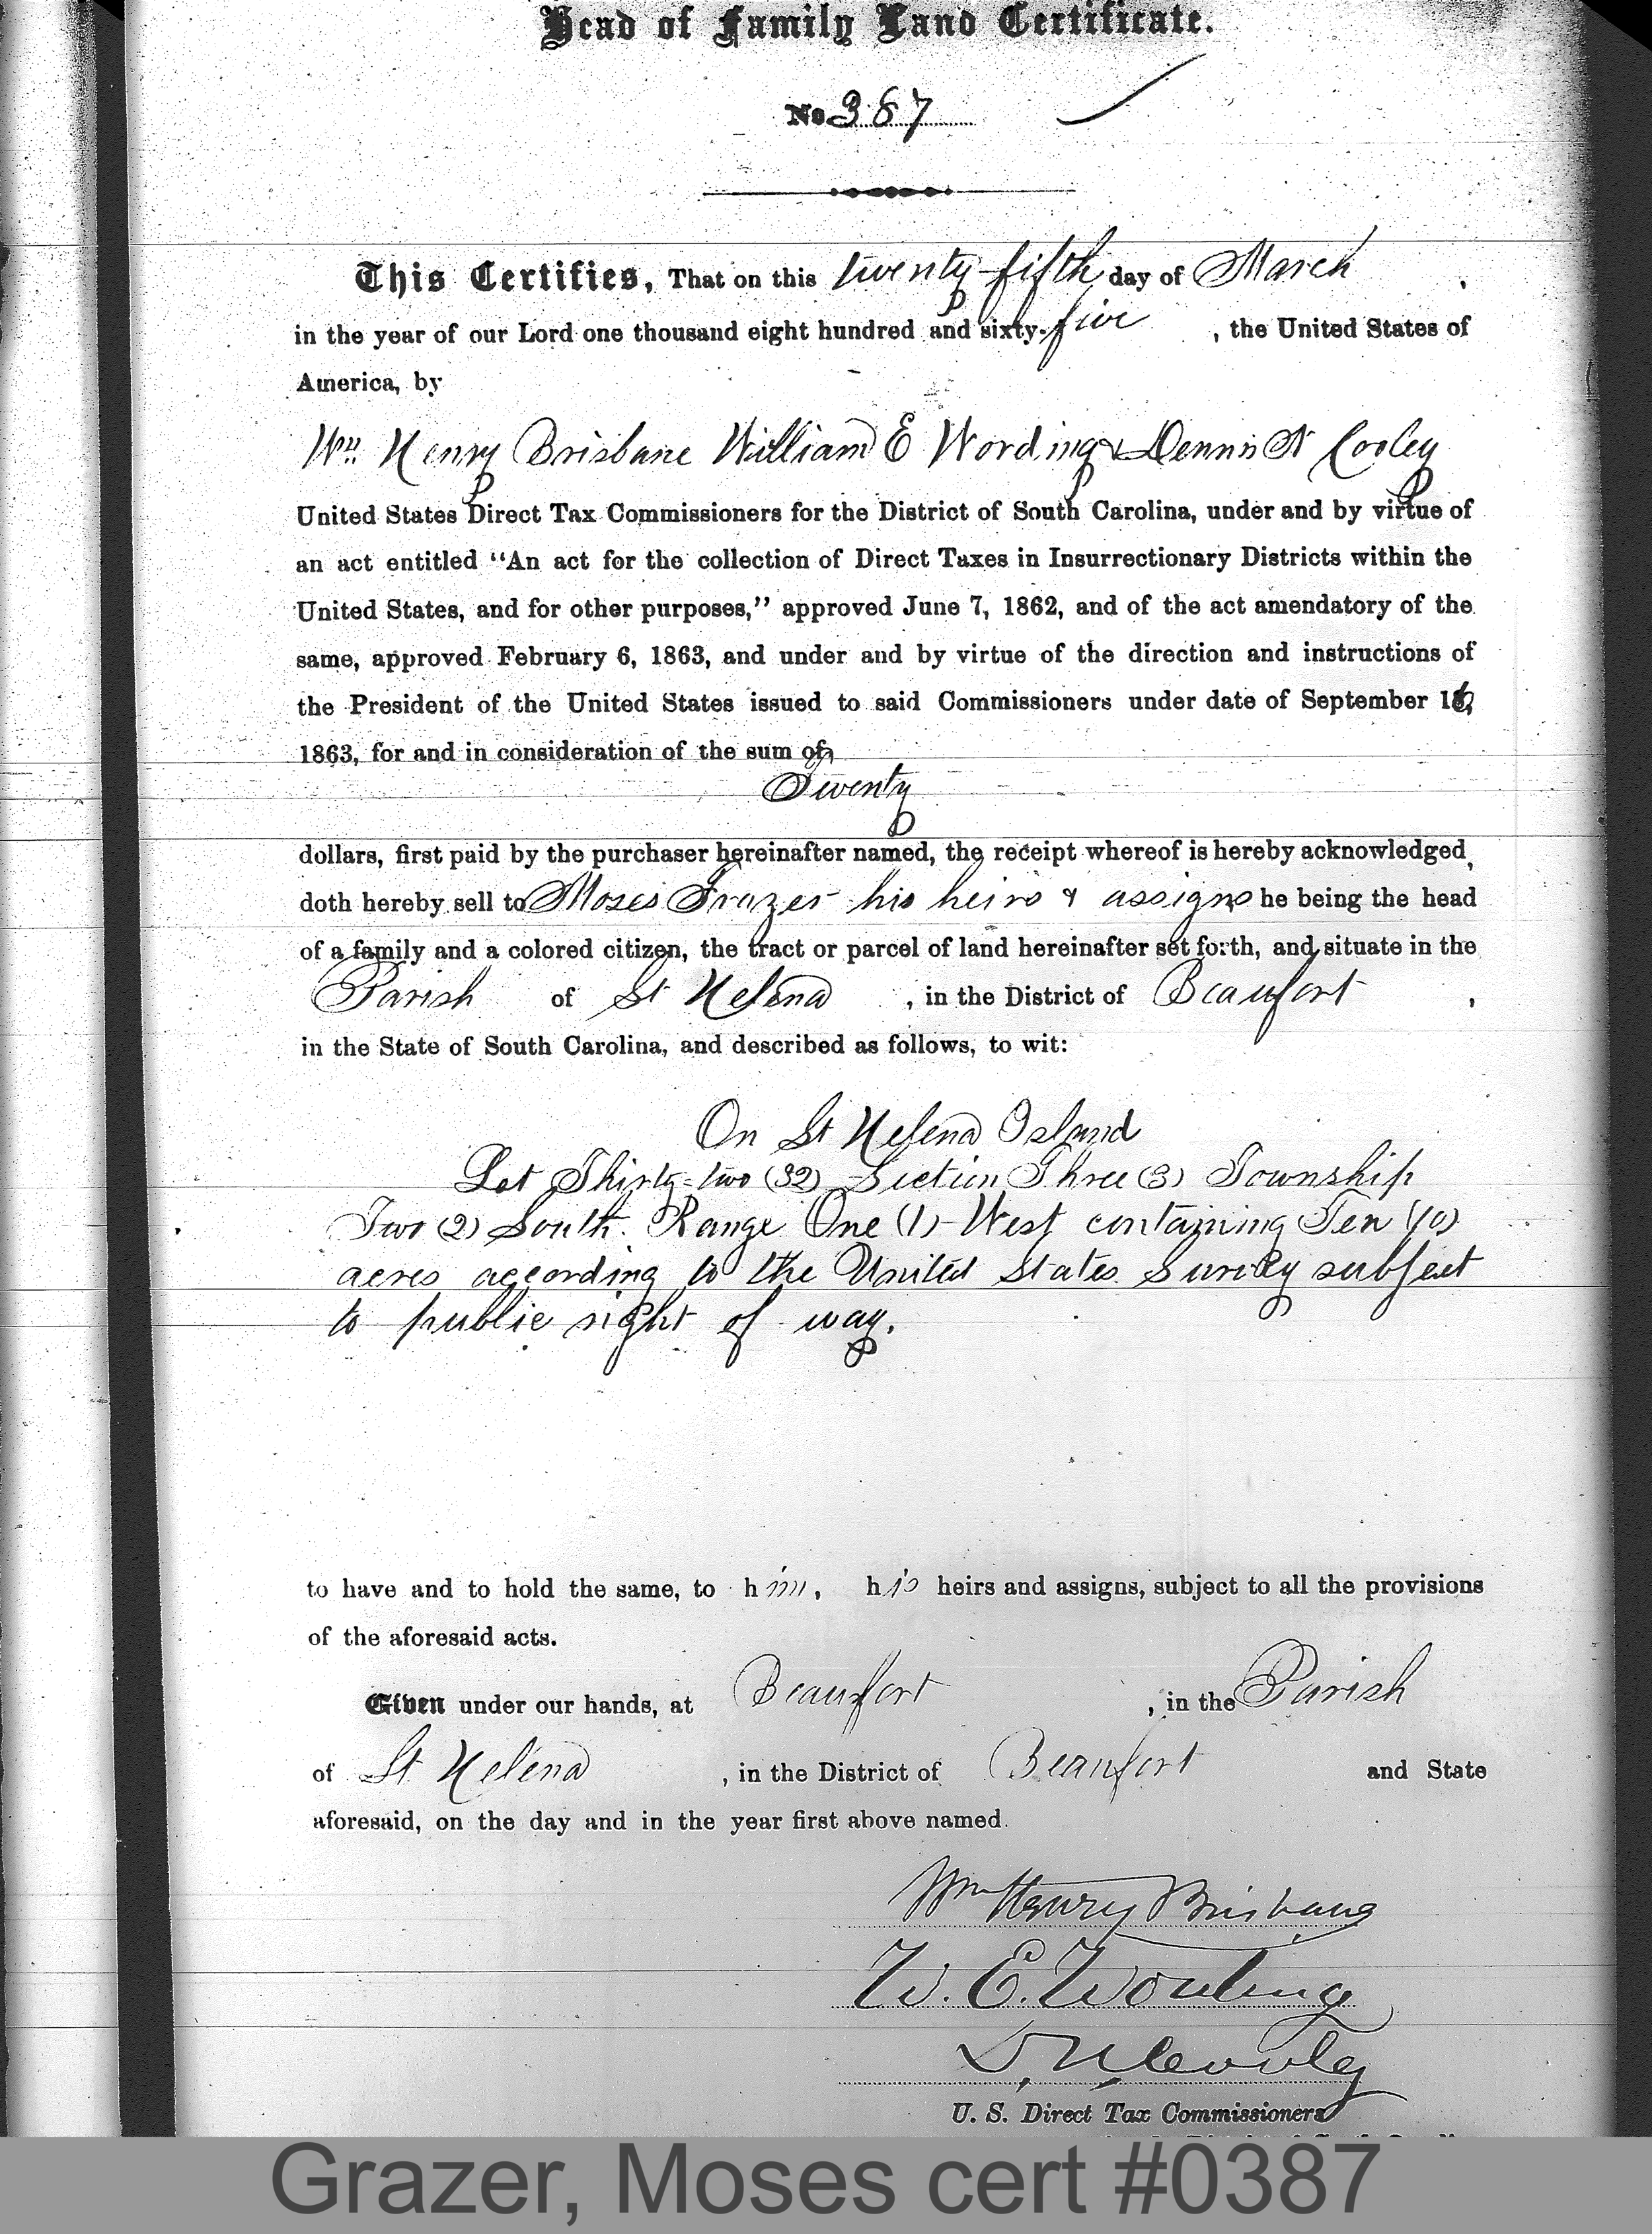 Head of Family Land Certificate.
No. 387
This Certifies, That on this twenty-fifth day of March ,
in the year of our Lord one thousand eight hundred and sixty-five , the United States of
America, by
Wm. Henry Brisbane William E Wording & Dennis N Cooley
United States Direct Tax Commissioners for the District of South Carolina, under and by virtue of
an act entitled "An act for the collection of Direct Taxes in Insurrectionary Districts within the
United States, and for other purposes," approved June 7, 1862, and of the act amendatory of the
same, approved February 6, 1863, and under and by virtue of the direction and instructions of
the President of the United States issued to said Commissioners under date of September 16,
1863, for and in consideration of the sum of
Twenty
dollars, first paid by the purchaser hereinafter named, the receipt whereof is hereby acknowledged,
doth hereby sell to Moses Frazer his heirs & assigns he being the head
of a family and a colored citizen, the tract or parcel of land hereinafter set forth, and situate in the
Parish of St Helena , in the District of Beaufort ,
in the State of South Carolina, and described as follows, to wit:
On St Helena Island
Lot Thirty-two (32) Section Three (3) Township
Two (2) South. Range One (1) West containing Ten (10)
acres according to the United States Survey subject
to public right of way.
to have and to hold the same, to him, his heirs and assigns, subject to all the provisions
of the aforesaid acts.
Given under our hands, at Beaufort , in the Parish
of St Helena , in the District of Beaufort and State
aforesaid, on the day and in the year first above named.
Wm Henry Brisbane
W. E. Wording
D. N. Cooley
U. S. Direct Tax Commissioners
Grazer, Moses cert #0387